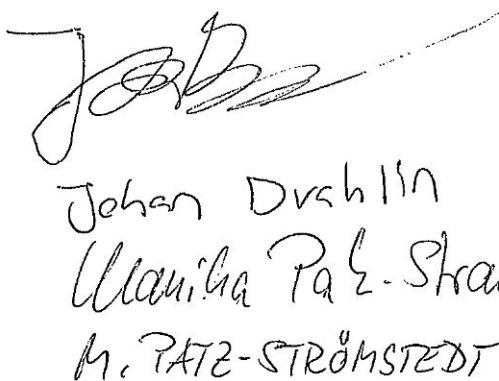 Johan Drahlin
Monika Patz-Strö
M. PATZ-STRÖMSTEDT